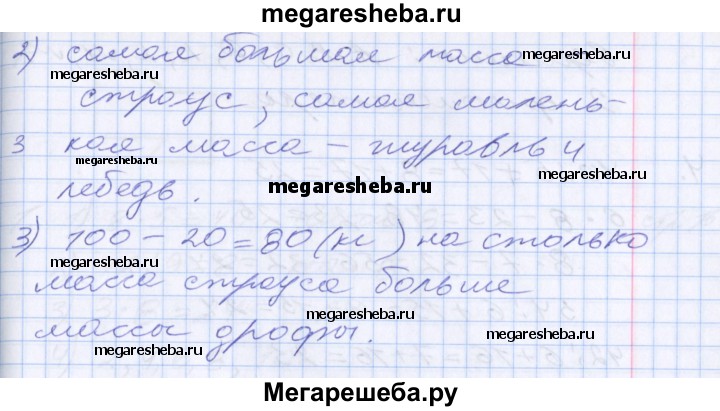 megaresheba.ru
2) самая большая масса
megaresheba.ru
megaresheba.ru
страус; самая малень-
megaresheba.ru
3 кая масса – журавль и
megaresheba.ru
megaresheba.ru
лебедь.
megaresheba.ru
3) 100 – 20 = 80 (кг) на столько
megaresheba.ru
megaresheba.ru
масса страуса больше
megaresheba.ru
массы дрофы.
megaresheba.ru
megaresheba.ru
Мегарешеба.ру